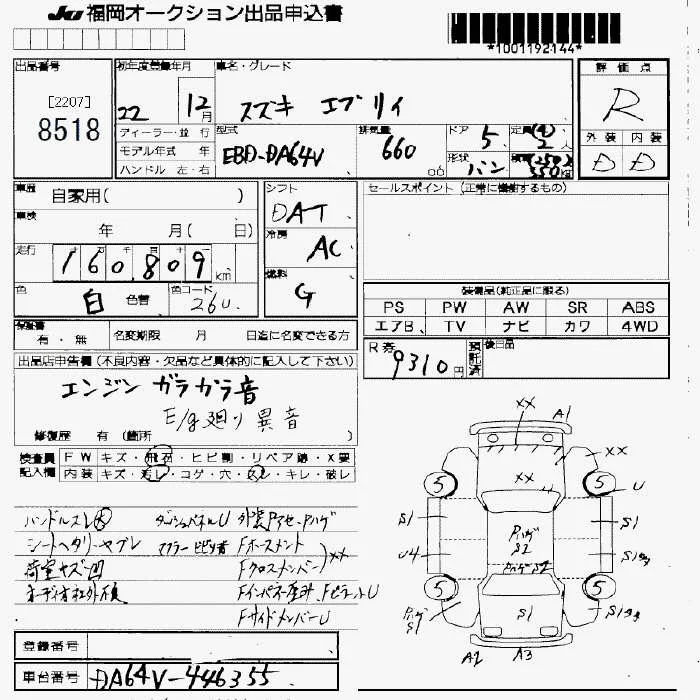 JU 福岡オークション出品申込書
*1001192144*
出品番号
[2207]
8518
初年度登録年月
22 12月
車名・グレード
スズキ エブリイ
ディーラー・並行
モデル年式 年
ハンドル 左・右
型式
EBD-DA64V
排気量
660 cc
ドア
5
定員(4)
2人
形状
バン
積載(250)
350kg
評価点
R
外装 内装
D D
車歴
自家用( )
車検
年 月( 日)
走行
160,809km
色
白 色替
色コード
26U
シフト
DAT
冷房
AC
燃料
G
セールスポイント(正常に機能するもの)
装備品(純正品に限る)
PS PW AW SR ABS
エアB TV ナビ カワ 4WD
保証書
有・無
名変期限 月 日迄に名変できる方
R券
9310円
預託済
後日品
出品店申告欄(不良内容・欠品など具体的に記入して下さい)
エンジン ガラガラ音
E/g廻り異音
修復歴 有(箇所
検査員
記入欄
FWキズ・飛石・ヒビ割・リペア跡・X要
内装 キズ・汚レ・コゲ・穴・スレ・キレ・破レ
ハンドルスレ大 ダッシュパネルU
シートヘタリ・ヤブレ
荷室キズ・凹 Fクロスメンバー XX
FサイドメンバーU
XX A1
XX XX
5 5 U
S1 S1
U4
5 5
S1
A2 A3
登録番号
車台番号
DA64V-446355